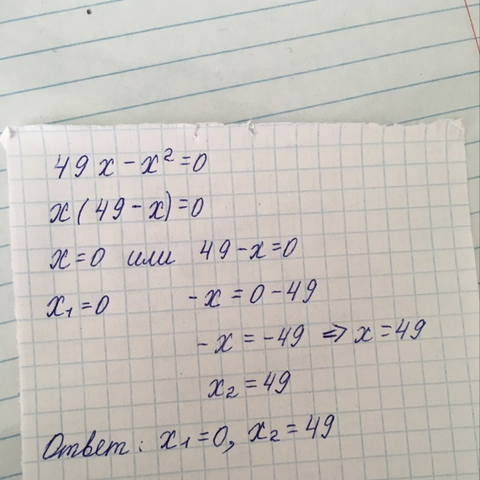 49x - x² = 0
x(49 - x) = 0
x = 0 или 49 - x = 0
x₁ = 0 - x = 0 - 49
- x = -49 => x = 49
x₂ = 49
Ответ: x₁ = 0, x₂ = 49